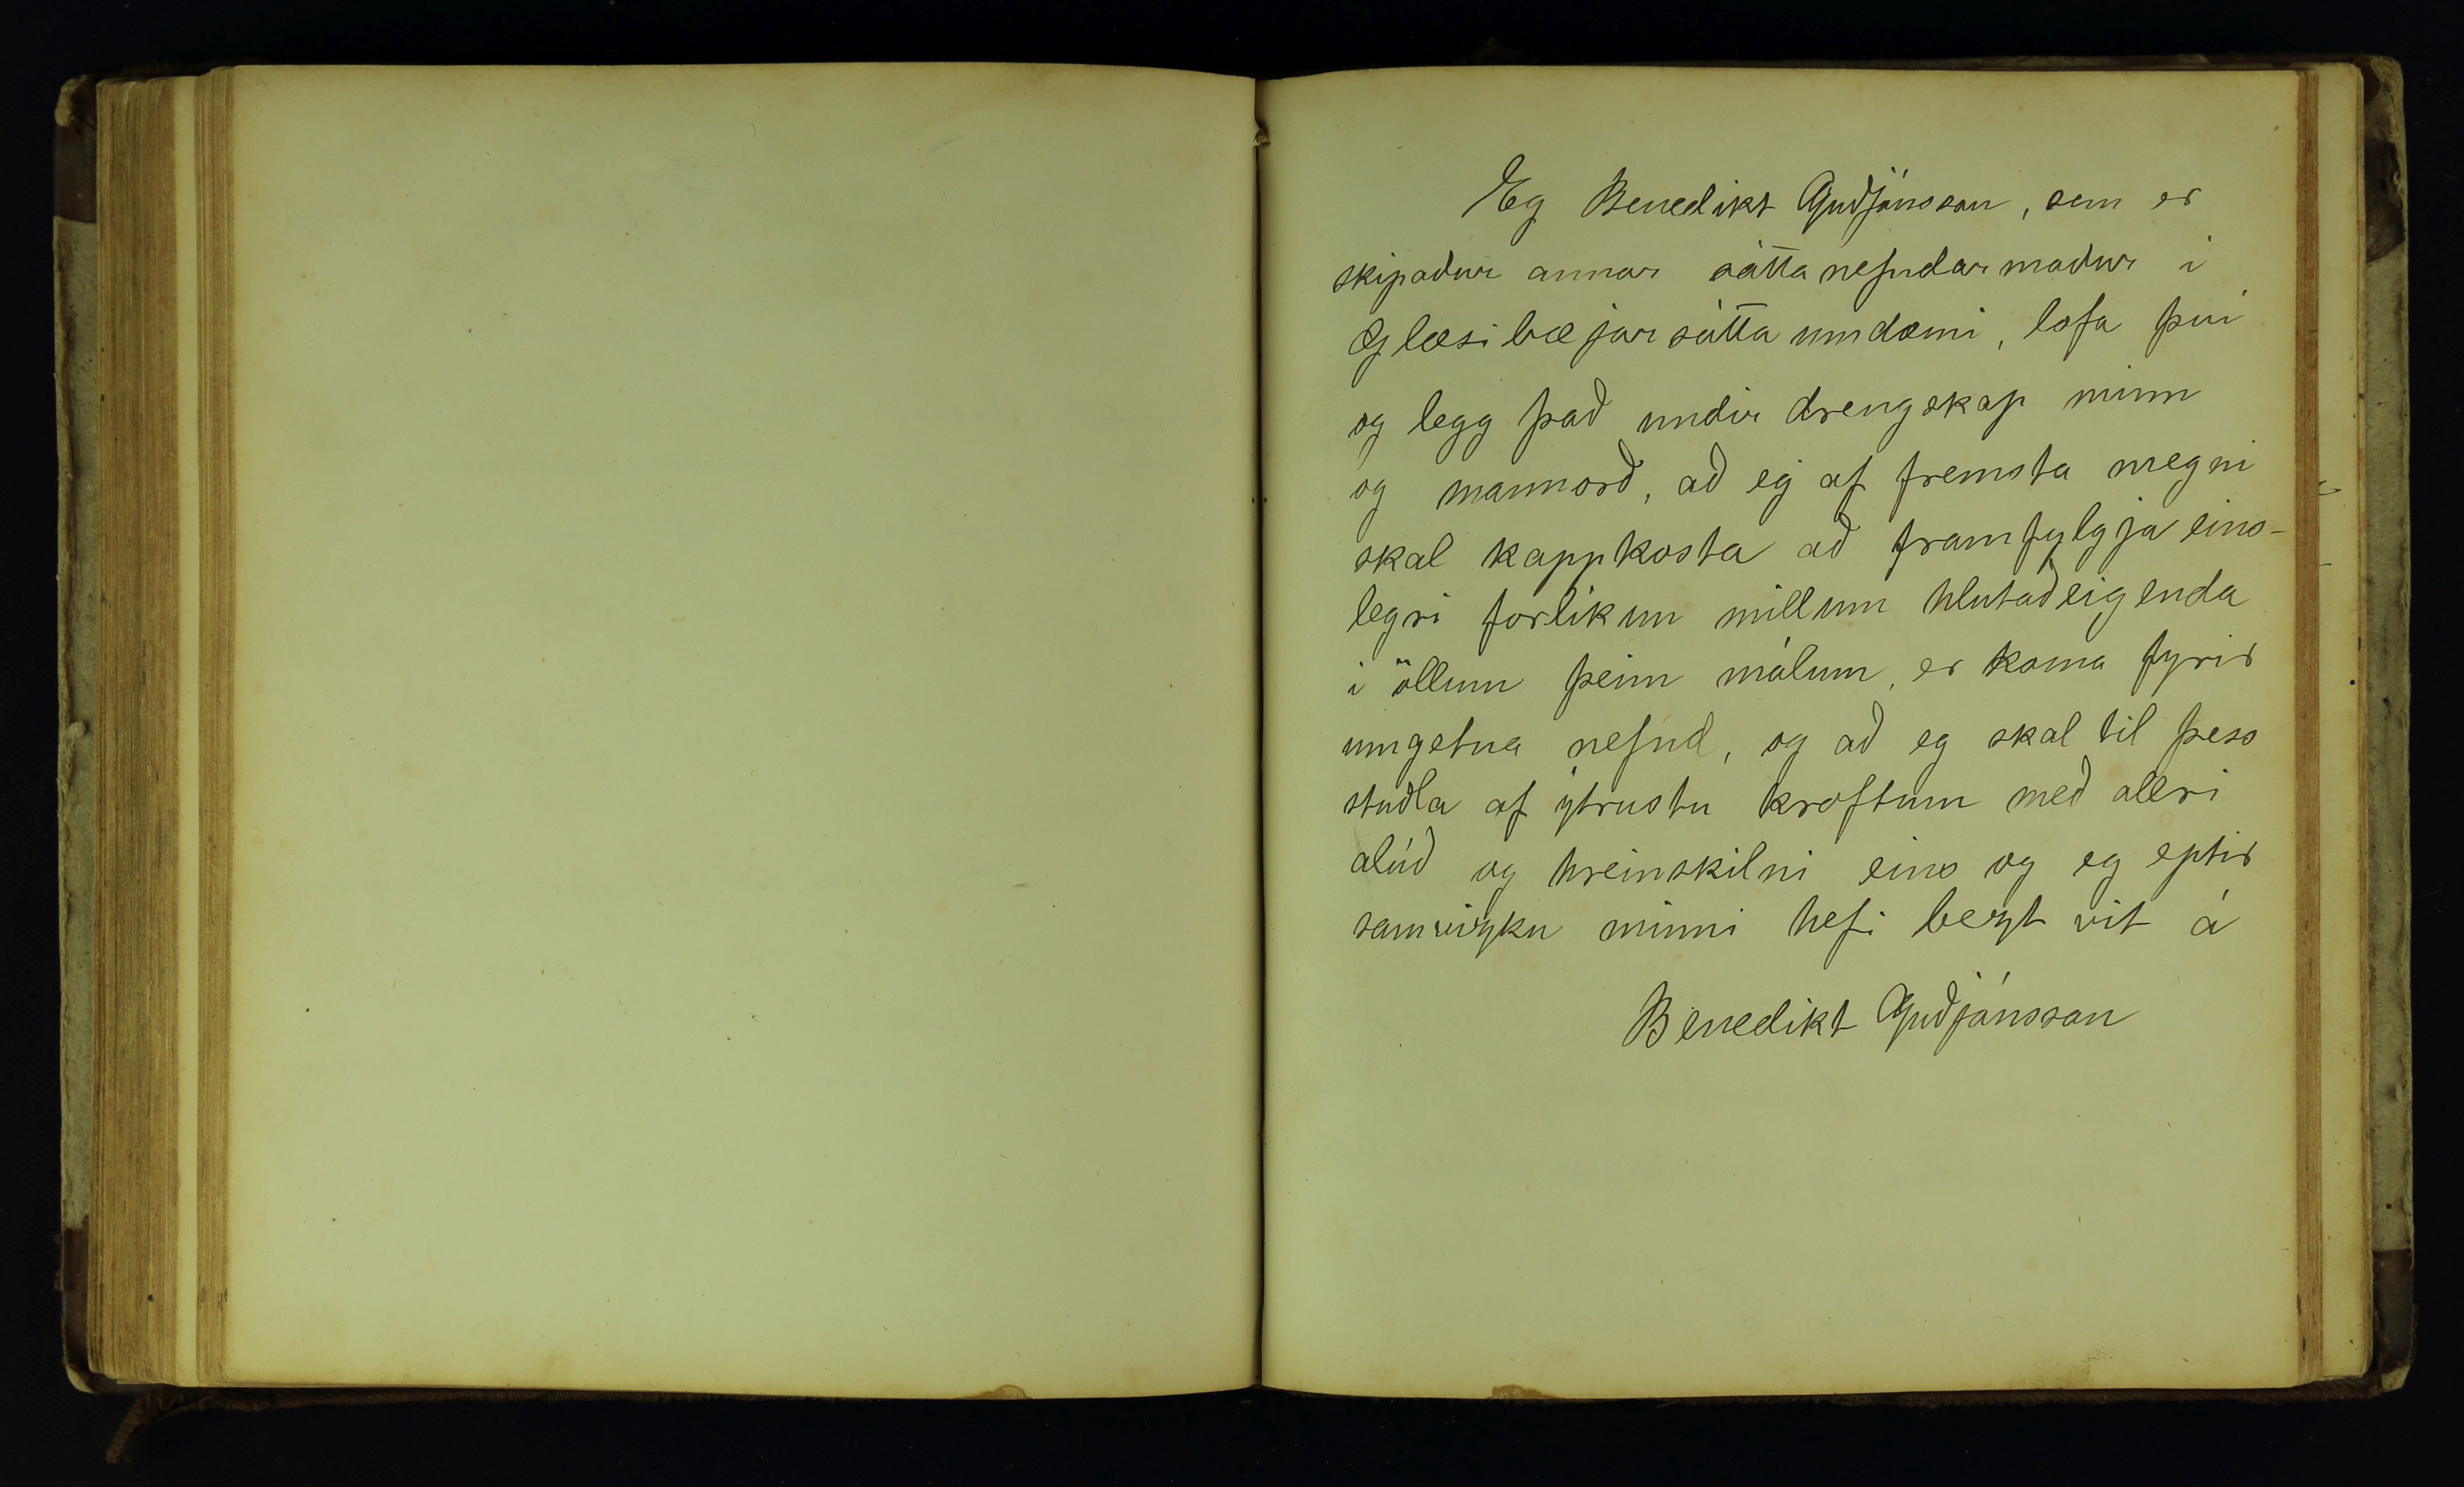 Eg Benedikt Guðjónsson, sem er
skipaður annar sáttanefndarmaður í
Glæsibæjarsáttaumdæmi, lofa því
og legg það undir drengskap minn
og mannorð, að eg af fremsta megni
skal kappkosta að framfylgja eins-
legri forlíkun millum hlutaðeigenda
í öllum þeim málum, er koma fyrir
umgetna nefnd, og að eg skal til þess
stuðla af ýtrustu kröftum með allri
alúð og hreinskilni eins og eg eptir
samvizku minni hefi bezt vit á
Benedikt Guðjónsson